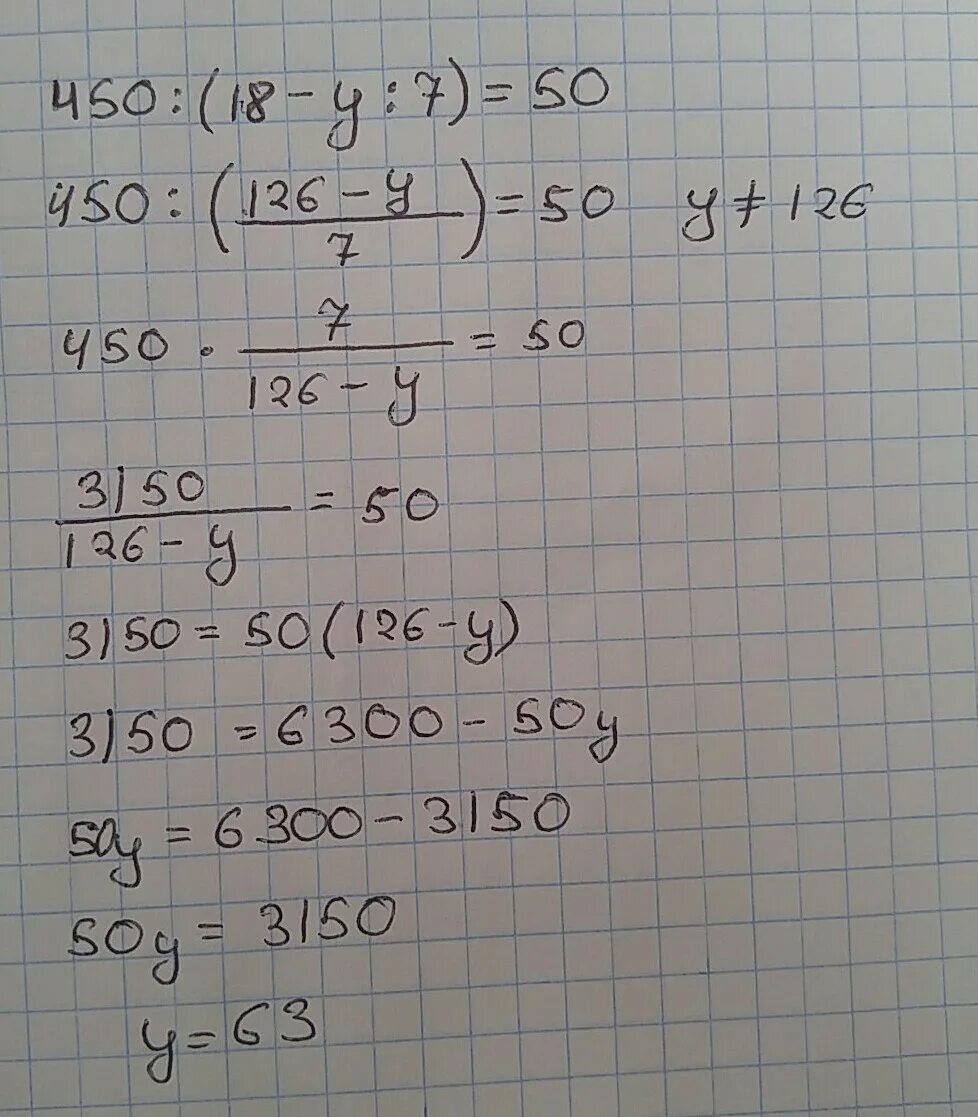 450:(18-y:7)=50
450:(126-y/7)=50 y≠126
450·7/126-y=50
3150/126-y=50
3150=50(126-y)
3150=6300-50y
50y=6300-3150
50y=3150
y=63